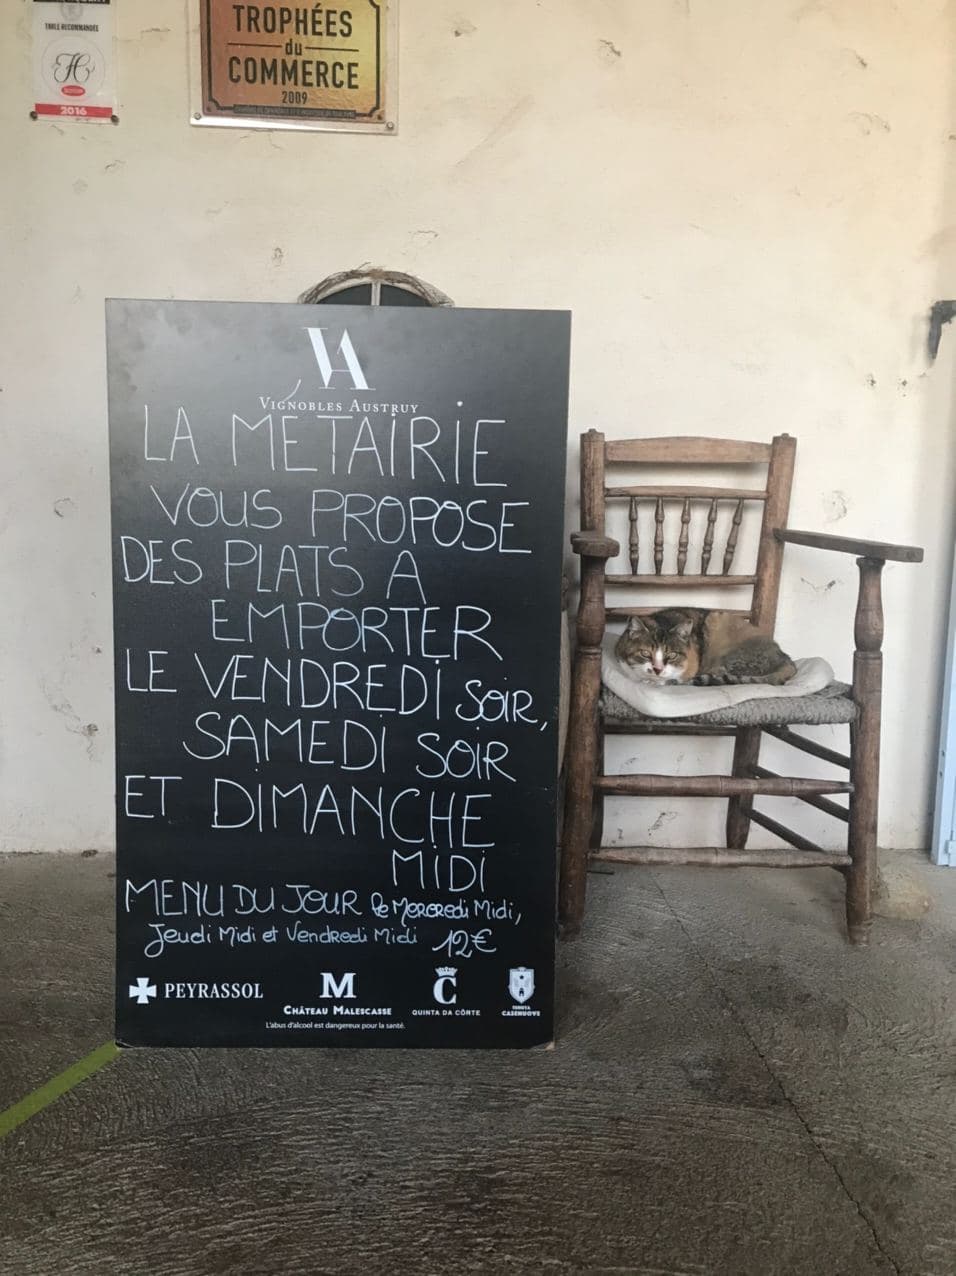 TABLE RECOMMANDÉE
2016
TROPHÉES
du
COMMERCE
2009
VA
VIGNOBLES AUSTRUY
LA MÉTAIRIE
VOUS PROPOSE
DES PLATS A
EMPORTER
LE VENDREDI SOIR,
SAMEDI SOIR
ET DIMANCHE
MIDI
MENU DU JOUR le Mercredi Midi,
Jeudi Midi et Vendredi Midi 12€
PEYRASSOL
M
CHÂTEAU MALESCASSE
C
QUINTA DA CÔRTE
TENUTA
CASENUOVE
L'abus d'alcool est dangereux pour la santé.